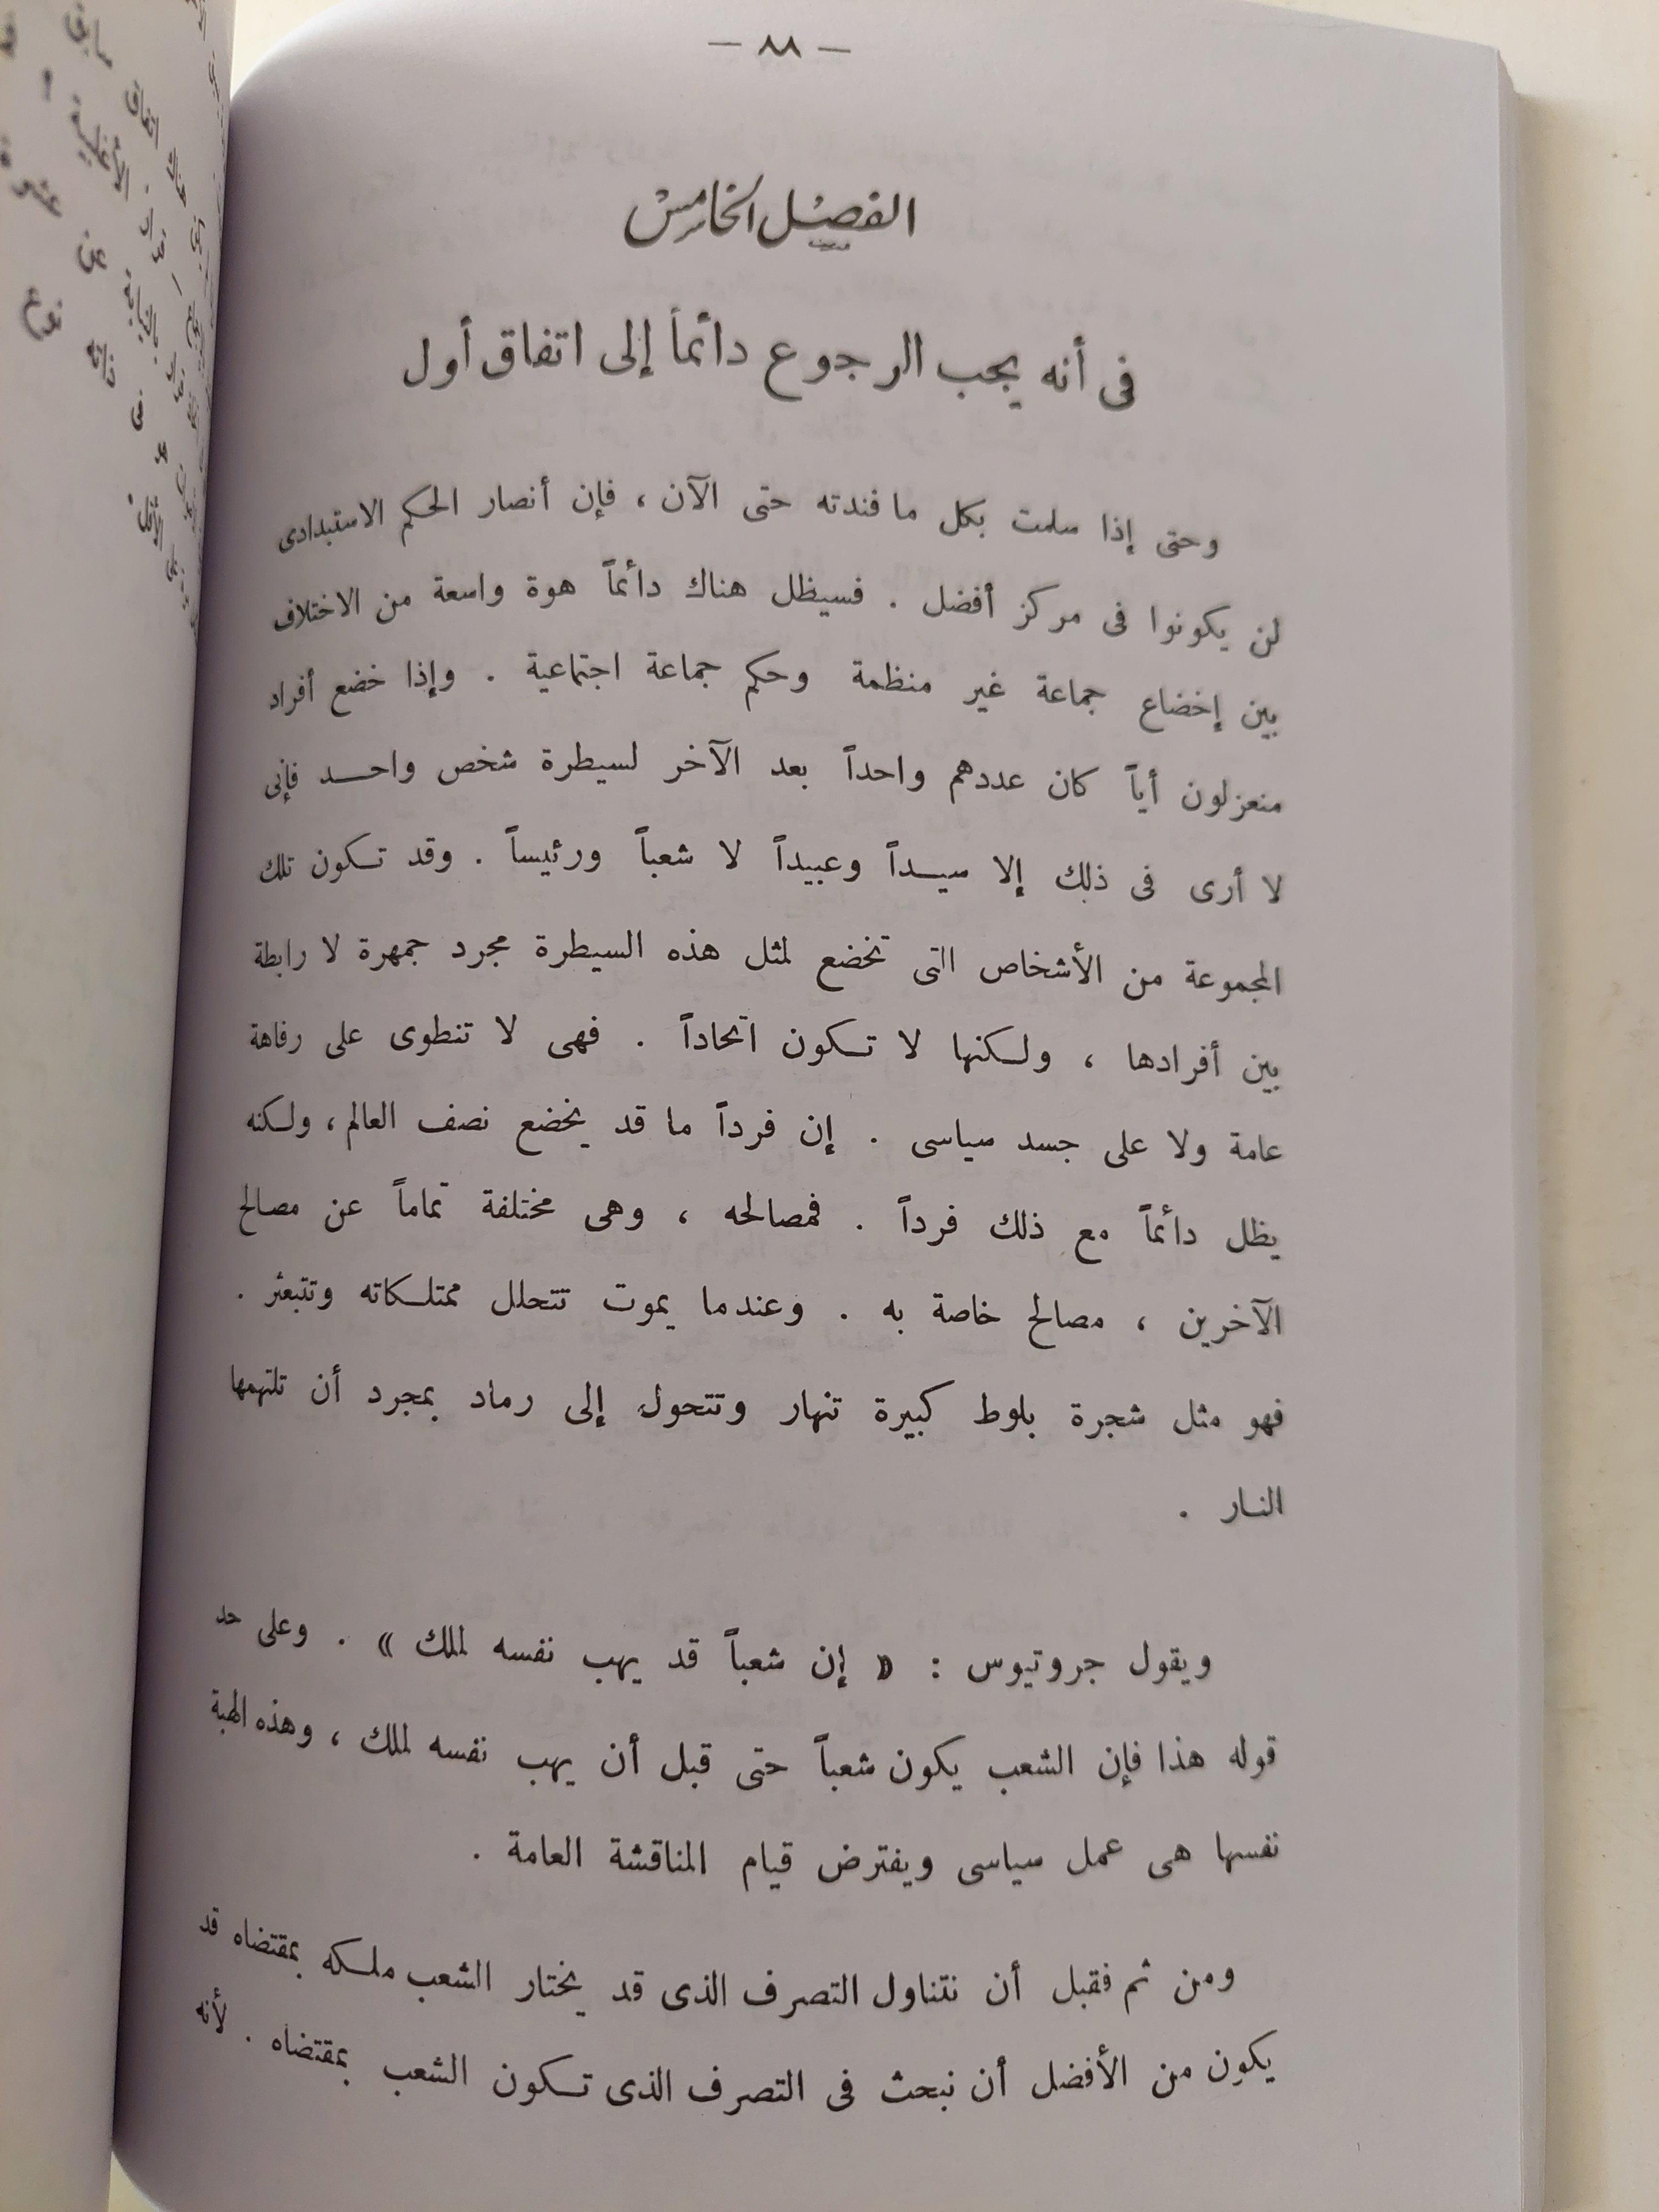 — ٨٨ —
الفصل الخامس
فى أنه يجب الرجوع دائماً إلى اتفاق أول
وحتى إذا سلمت بكل ما فندته حتى الآن ، فإن أنصار الحكم الاستبدادى
لن يكونوا فى مركز أفضل . فسيظل هناك دائماً هوة واسعة من الاختلاف
بين إخضاع جماعة غير منظمة وحكم جماعة اجتماعية . وإذا خضع أفراد
منعزلون أياً كان عددهم واحداً بعد الآخر لسيطرة شخص واحد فإنى
لا أرى فى ذلك إلا سيداً وعبيداً لا شعباً ورئيساً . وقد تكون تلك
المجموعة من الأشخاص التى تخضع لمثل هذه السيطرة مجرد جمهرة لا رابطة
بين أفرادها ، ولكنها لا تكون اتحاداً . فهى لا تنطوى على رفاهة
عامة ولا على جسد سياسى . إن فرداً ما قد يخضع نصف العالم ، ولكنه
يظل دائماً مع ذلك فرداً . فمصالحه ، وهى مختلفة تماماً عن مصالح
الآخرين ، مصالح خاصة به . وعندما يموت تتحلل ممتلكاته وتتبعثر .
فهو مثل شجرة بلوط كبيرة تنهار وتتحول إلى رماد بمجرد أن تلتهمها
النار .
ويقول جروتيوس : « إن شعباً قد يهب نفسه لملك » . وعلى حد
قوله هذا فإن الشعب يكون شعباً حتى قبل أن يهب نفسه لملك ، وهذه الهبة
نفسها هى عمل سياسى ويفترض قيام المناقشة العامة .
ومن ثم فقبل أن نتناول التصرف الذى قد يختار الشعب ملكه بمقتضاه قد
يكون من الأفضل أن نبحث فى التصرف الذى تكون الشعب بمقتضاه . لأنه